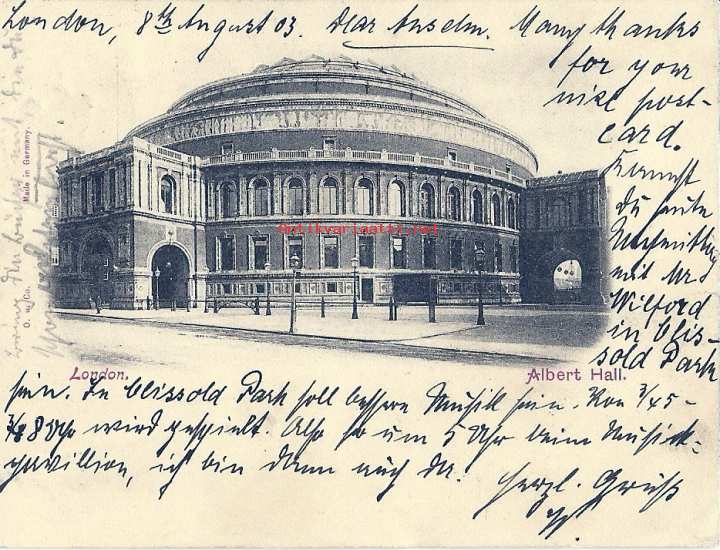 London, 8th August 03. Dear Anselm. Many thanks
for your
nice post-
card.
Kannst
du heute
Nachmittag
mit Mr
Wilford
in Clis-
sold Park
sein. In Clissold Park soll bessere Musik sein. Von 3/45-
8 Uhr wird gespielt. Also so um 5 Uhr beim Musik-
pavillion, ich bin dann auch da.
herzl. Gruß
London.
Albert Hall.
Made in Germany.
antikvariaatti.net